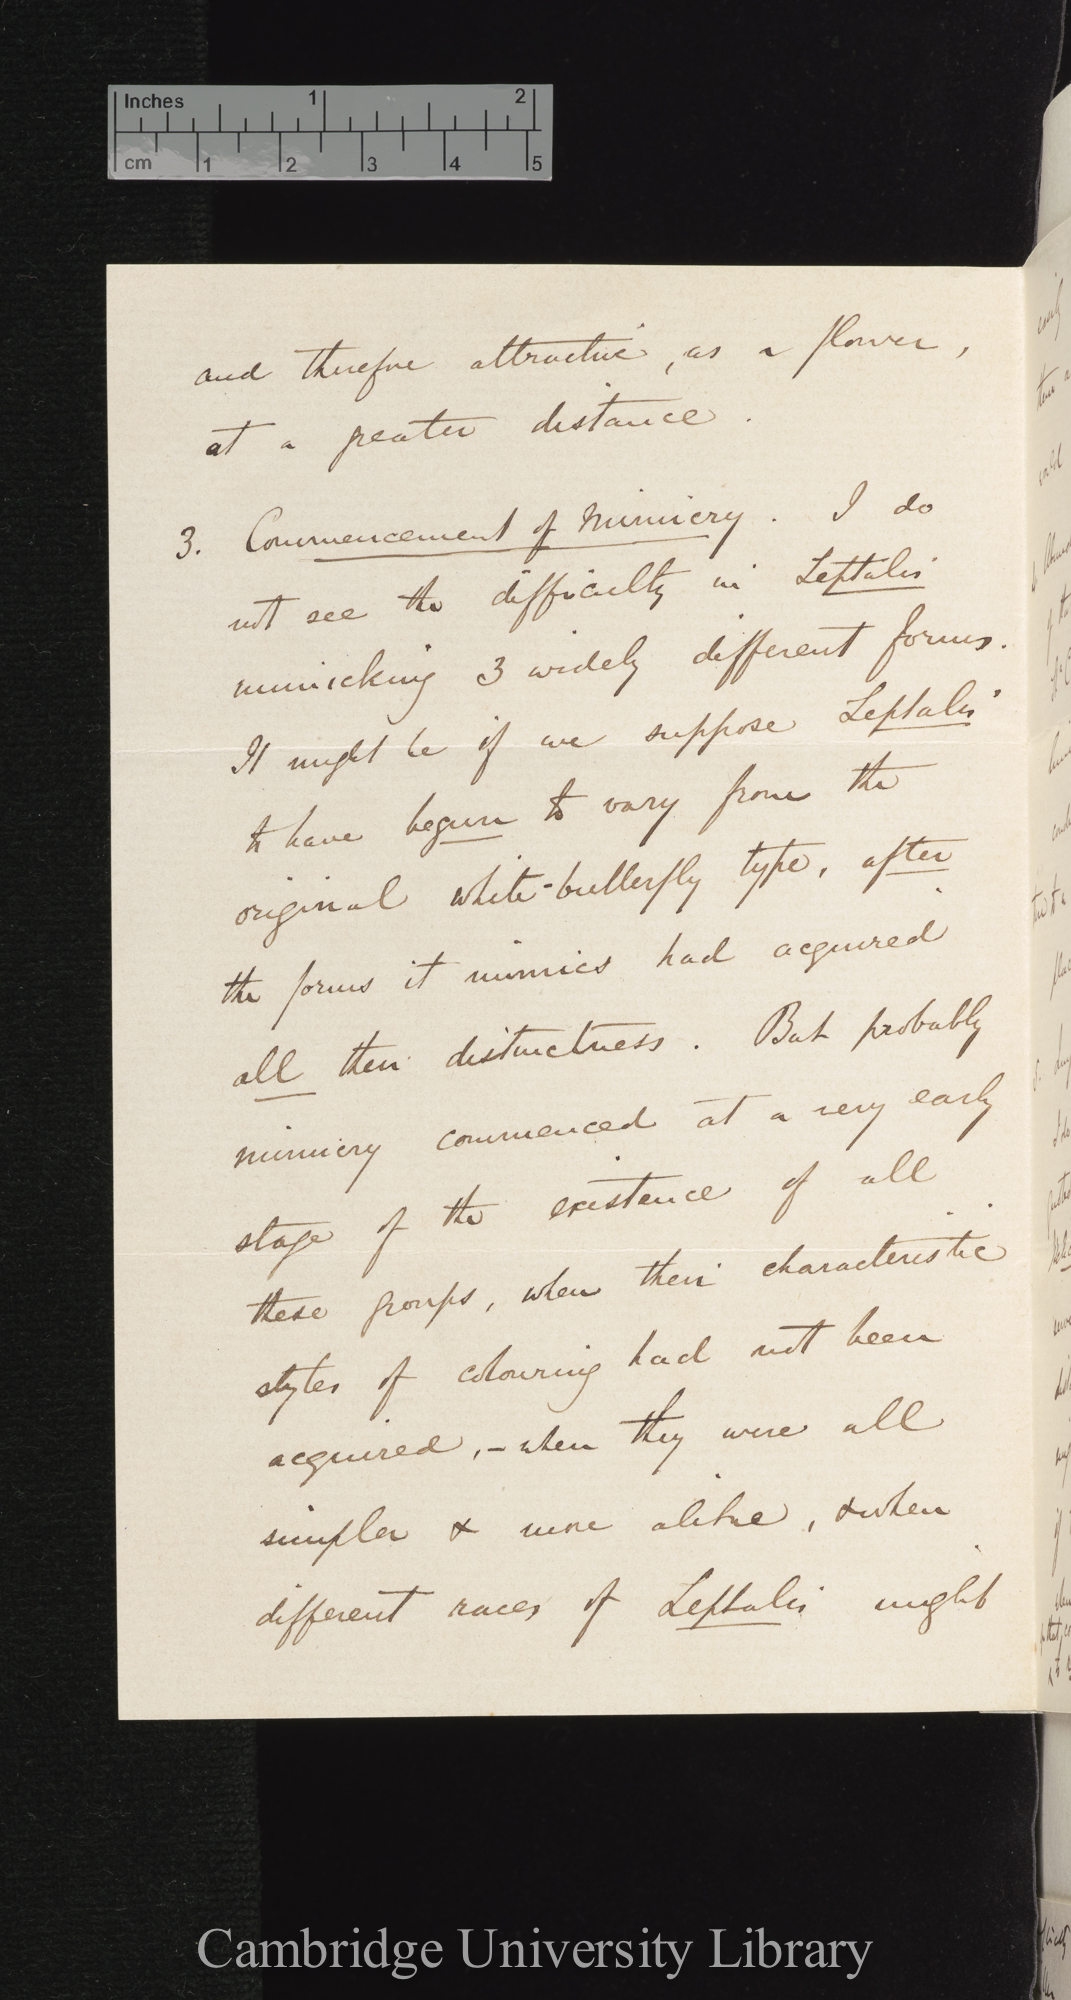 Inches 1 2
cm 1 2 3 4 5
and therefore attractive, as a flower,
at a greater distance.
3. Commencement of Mimicry. I do
not see the difficulty in Leptalis
mimicking 3 widely different forms.
It might be if we suppose Leptalis
to have begun to vary from the
original white-butterfly type, after
the forms it mimics had acquired
all their distinctness. But probably
mimicry commenced at a very early
stage of the existence of all
these groups, when their characteristic
styles of colouring had not been
acquired,- when they were all
simpler & more alike, & when
different races of Leptalis might
Cambridge University Library